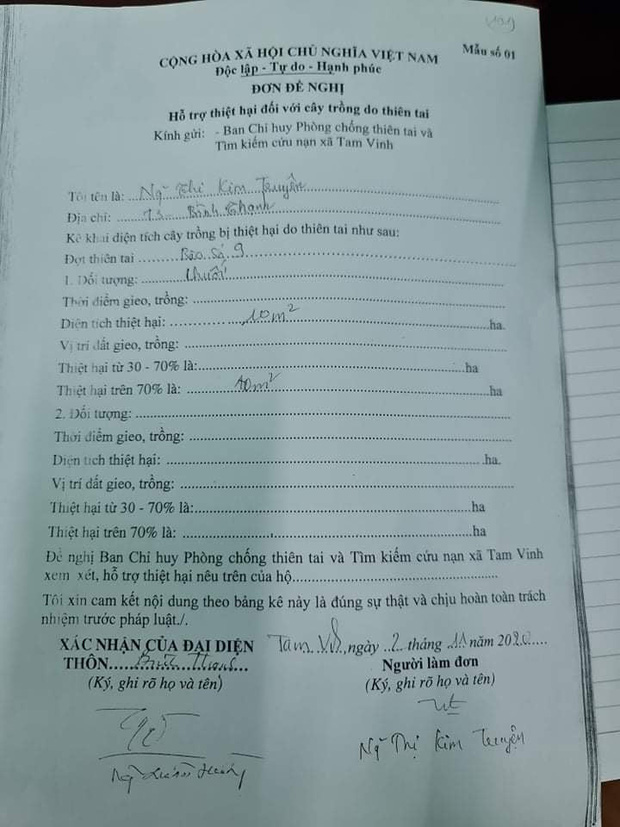 CỘNG HÒA XÃ HỘI CHỦ NGHĨA VIỆT NAM
Mẫu số 01
Độc lập - Tự do - Hạnh phúc
ĐƠN ĐỀ NGHỊ
Hỗ trợ thiệt hại đối với cây trồng do thiên tai
Kính gửi: - Ban Chỉ huy Phòng chống thiên tai và
Tìm kiếm cứu nạn xã Tam Vinh
Tôi tên là: Ng̃ Thị Kim Truyền
Địa chỉ: Bình Thạnh
Kê khai diện tích cây trồng bị thiệt hại do thiên tai như sau:
Đợt thiên tai Bão số 9
1. Đối tượng: chuối
Thời điểm gieo, trồng:
Diện tích thiệt hại: 10m² ha.
Vị trí đất gieo, trồng:
Thiệt hại từ 30 - 70% là: ha
Thiệt hại trên 70% là: 10m² ha
2. Đối tượng:
Thời điểm gieo, trồng:
Diện tích thiệt hại: ha.
Vị trí đất gieo, trồng:
Thiệt hại từ 30 - 70% là: ha
Thiệt hại trên 70% là: ha
Đề nghị Ban Chỉ huy Phòng chống thiên tai và Tìm kiếm cứu nạn xã Tam Vinh
xem xét, hỗ trợ thiệt hại nêu trên của hộ
Tôi xin cam kết nội dung theo bảng kê này là đúng sự thật và chịu hoàn toàn trách
nhiệm trước pháp luật./.
XÁC NHẬN CỦA ĐẠI DIỆN
THÔN
(Ký, ghi rõ họ và tên)
Tam Vinh, ngày 2 tháng 11 năm 2020
Người làm đơn
(Ký, ghi rõ họ và tên)
Ng̃ Thị Kim Truyền